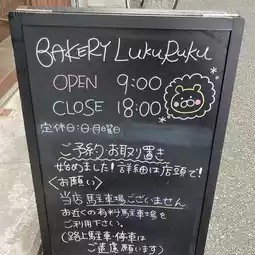 BAKERY LukuRuku
OPEN 9:00
CLOSE 18:00
定休日:日月曜日
ご予約・お取り置き
始めました!詳細は店頭で!
〈お願い〉
当店駐車場ございません
お近くの有料駐車場を
ご利用下さい。
(路上駐車・停車は
ご遠慮願います)